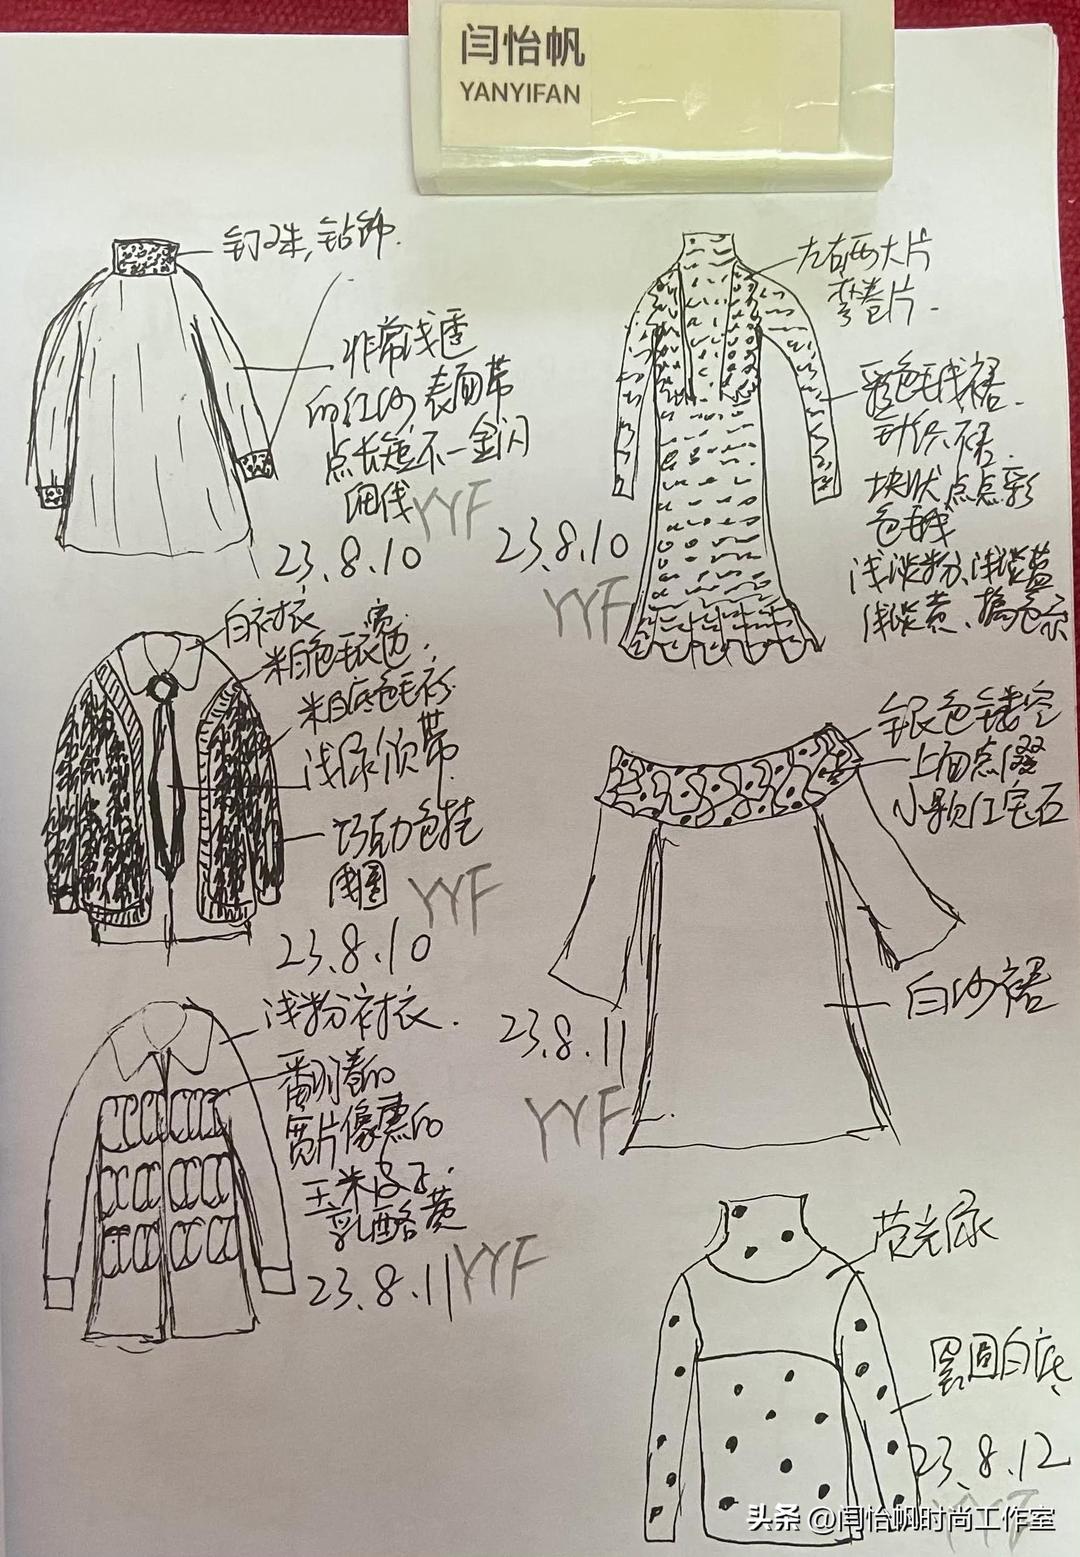 闫怡帆
YANYIFAN
钉珠,钻饰.
非常浅透
的红纱,表面带
点长短不一金闪
细线
YYF
23.8.10
左右两大片
弯卷片.
彩色毛线裙.
针织裙.
块状点点彩
色毛线
浅淡粉、浅淡蓝
浅淡黄、
23.8.10
YYF
白衬衣
米白色毛衣
米白底色毛衫
浅尿领带
巧克力色挂
线圈
YYF
23.8.10
银色镂空
上面点缀
小颗红宝石
白纱裙
23.8.11
YYF
浅粉衬衣.
翻卷的
宽片像
玉米皮子.
乳酪黄
23.8.11
YYF
荧光
黑圆白底
23.8.12
YYF
头条 @闫怡帆时尚工作室